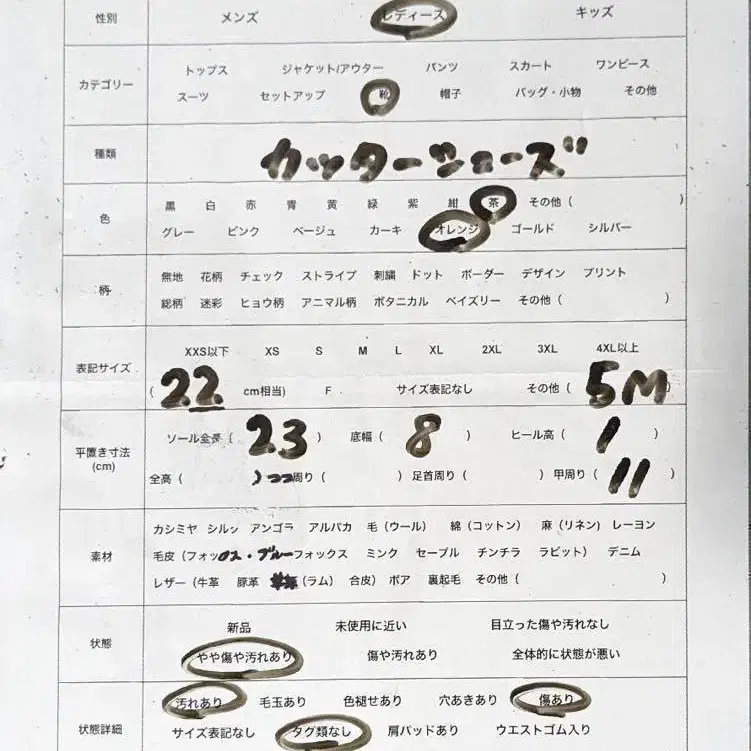 性別 メンズ レディース キッズ
カテゴリー
トップス ジャケット/アウター パンツ スカート ワンピース
スーツ セットアップ 靴 帽子 バッグ・小物 その他
種類 カッターシューズ
色
黒 白 赤 青 黄 緑 紫 紺 茶 その他 ( )
グレー ピンク ベージュ カーキ オレンジ ゴールド シルバー
柄
無地 花柄 チェック ストライプ 刺繍 ドット ボーダー デザイン プリント
総柄 迷彩 ヒョウ柄 アニマル柄 ボタニカル ペイズリー その他 ( )
表記サイズ
XXS以下 XS S M L XL 2XL 3XL 4XL以上
( 22 cm相当) F サイズ表記なし その他 ( 5M )
平置き寸法
(cm)
ソール全長 ( 23 ) 底幅 ( 8 ) ヒール高 ( 1 )
全高 ( ) 周り ( ) 足首周り ( ) 甲周り ( 11 )
素材
カシミヤ シルク アンゴラ アルパカ 毛 (ウール) 綿 (コットン) 麻 (リネン) レーヨン
毛皮 (フォックス・ブルーフォックス ミンク セーブル チンチラ ラビット) デニム
レザー (牛革 豚革 (ラム) 合皮) ボア 裏起毛 その他 ( )
状態
新品 未使用に近い 目立った傷や汚れなし
やや傷や汚れあり 傷や汚れあり 全体的に状態が悪い
状態詳細
汚れあり 毛玉あり 色褪せあり 穴あきあり 傷あり
サイズ表記なし タグ類なし 肩パッドあり ウエストゴム入り